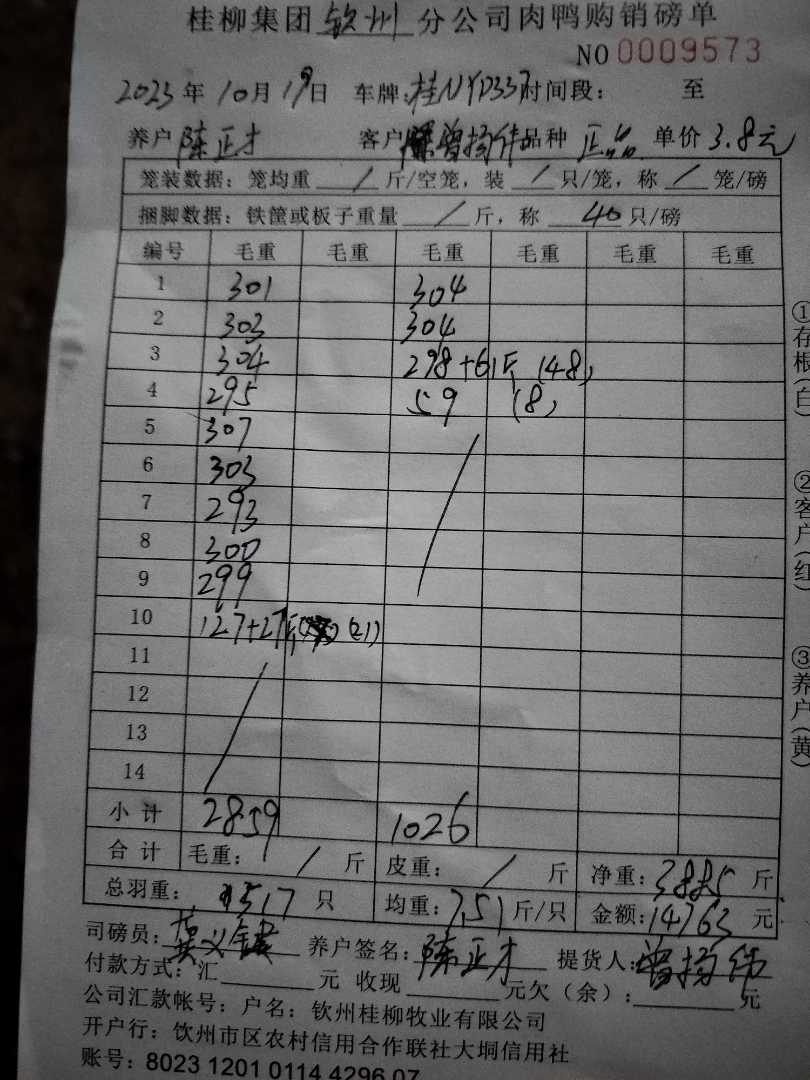 桂柳集团 钦州 分公司肉鸭购销磅单
NO 0009573
2023年10月19日 车牌:桂NYD337 时间段: 至
养户 陈正才 客户 曾扬伟 品种 正品 单价 3.8元
笼装数据: 笼均重 / 斤/空笼, 装 / 只/笼, 称 / 笼/磅
捆脚数据: 铁筐或板子重量 / 斤, 称 40 只/磅
编号 毛重 毛重 毛重 毛重 毛重 毛重
1 301 304
2 303 304
3 304 298+61斤 (48)
4 295 59 (8)
5 307 /
6 303
7 293
8 300
9 299
10 127+27斤 (21)
11 /
12
13
14
小计 2859 1026
合计 毛重: / 斤 皮重: / 斤 净重: 3885 斤
总羽重: 517 只 均重: 7.51 斤/只 金额: 14763 元
司磅员: 养户签名: 陈正才 提货人: 曾扬伟
付款方式: 汇 元 收现 元欠(余): 元
公司汇款帐号: 户名: 钦州桂柳牧业有限公司
开户行: 钦州市区农村信用合作联社大垌信用社
账号: 8023 1201 0114 4296 07
①存根(白)
②客户(红)
③养户(黄)